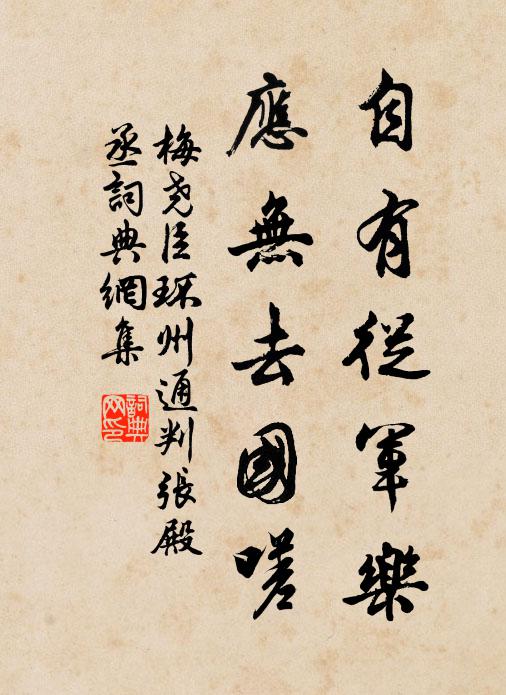 自有從軍樂
應無去國嗟
梅尧臣环州通判張殿
丞詞典網集
詞典網印